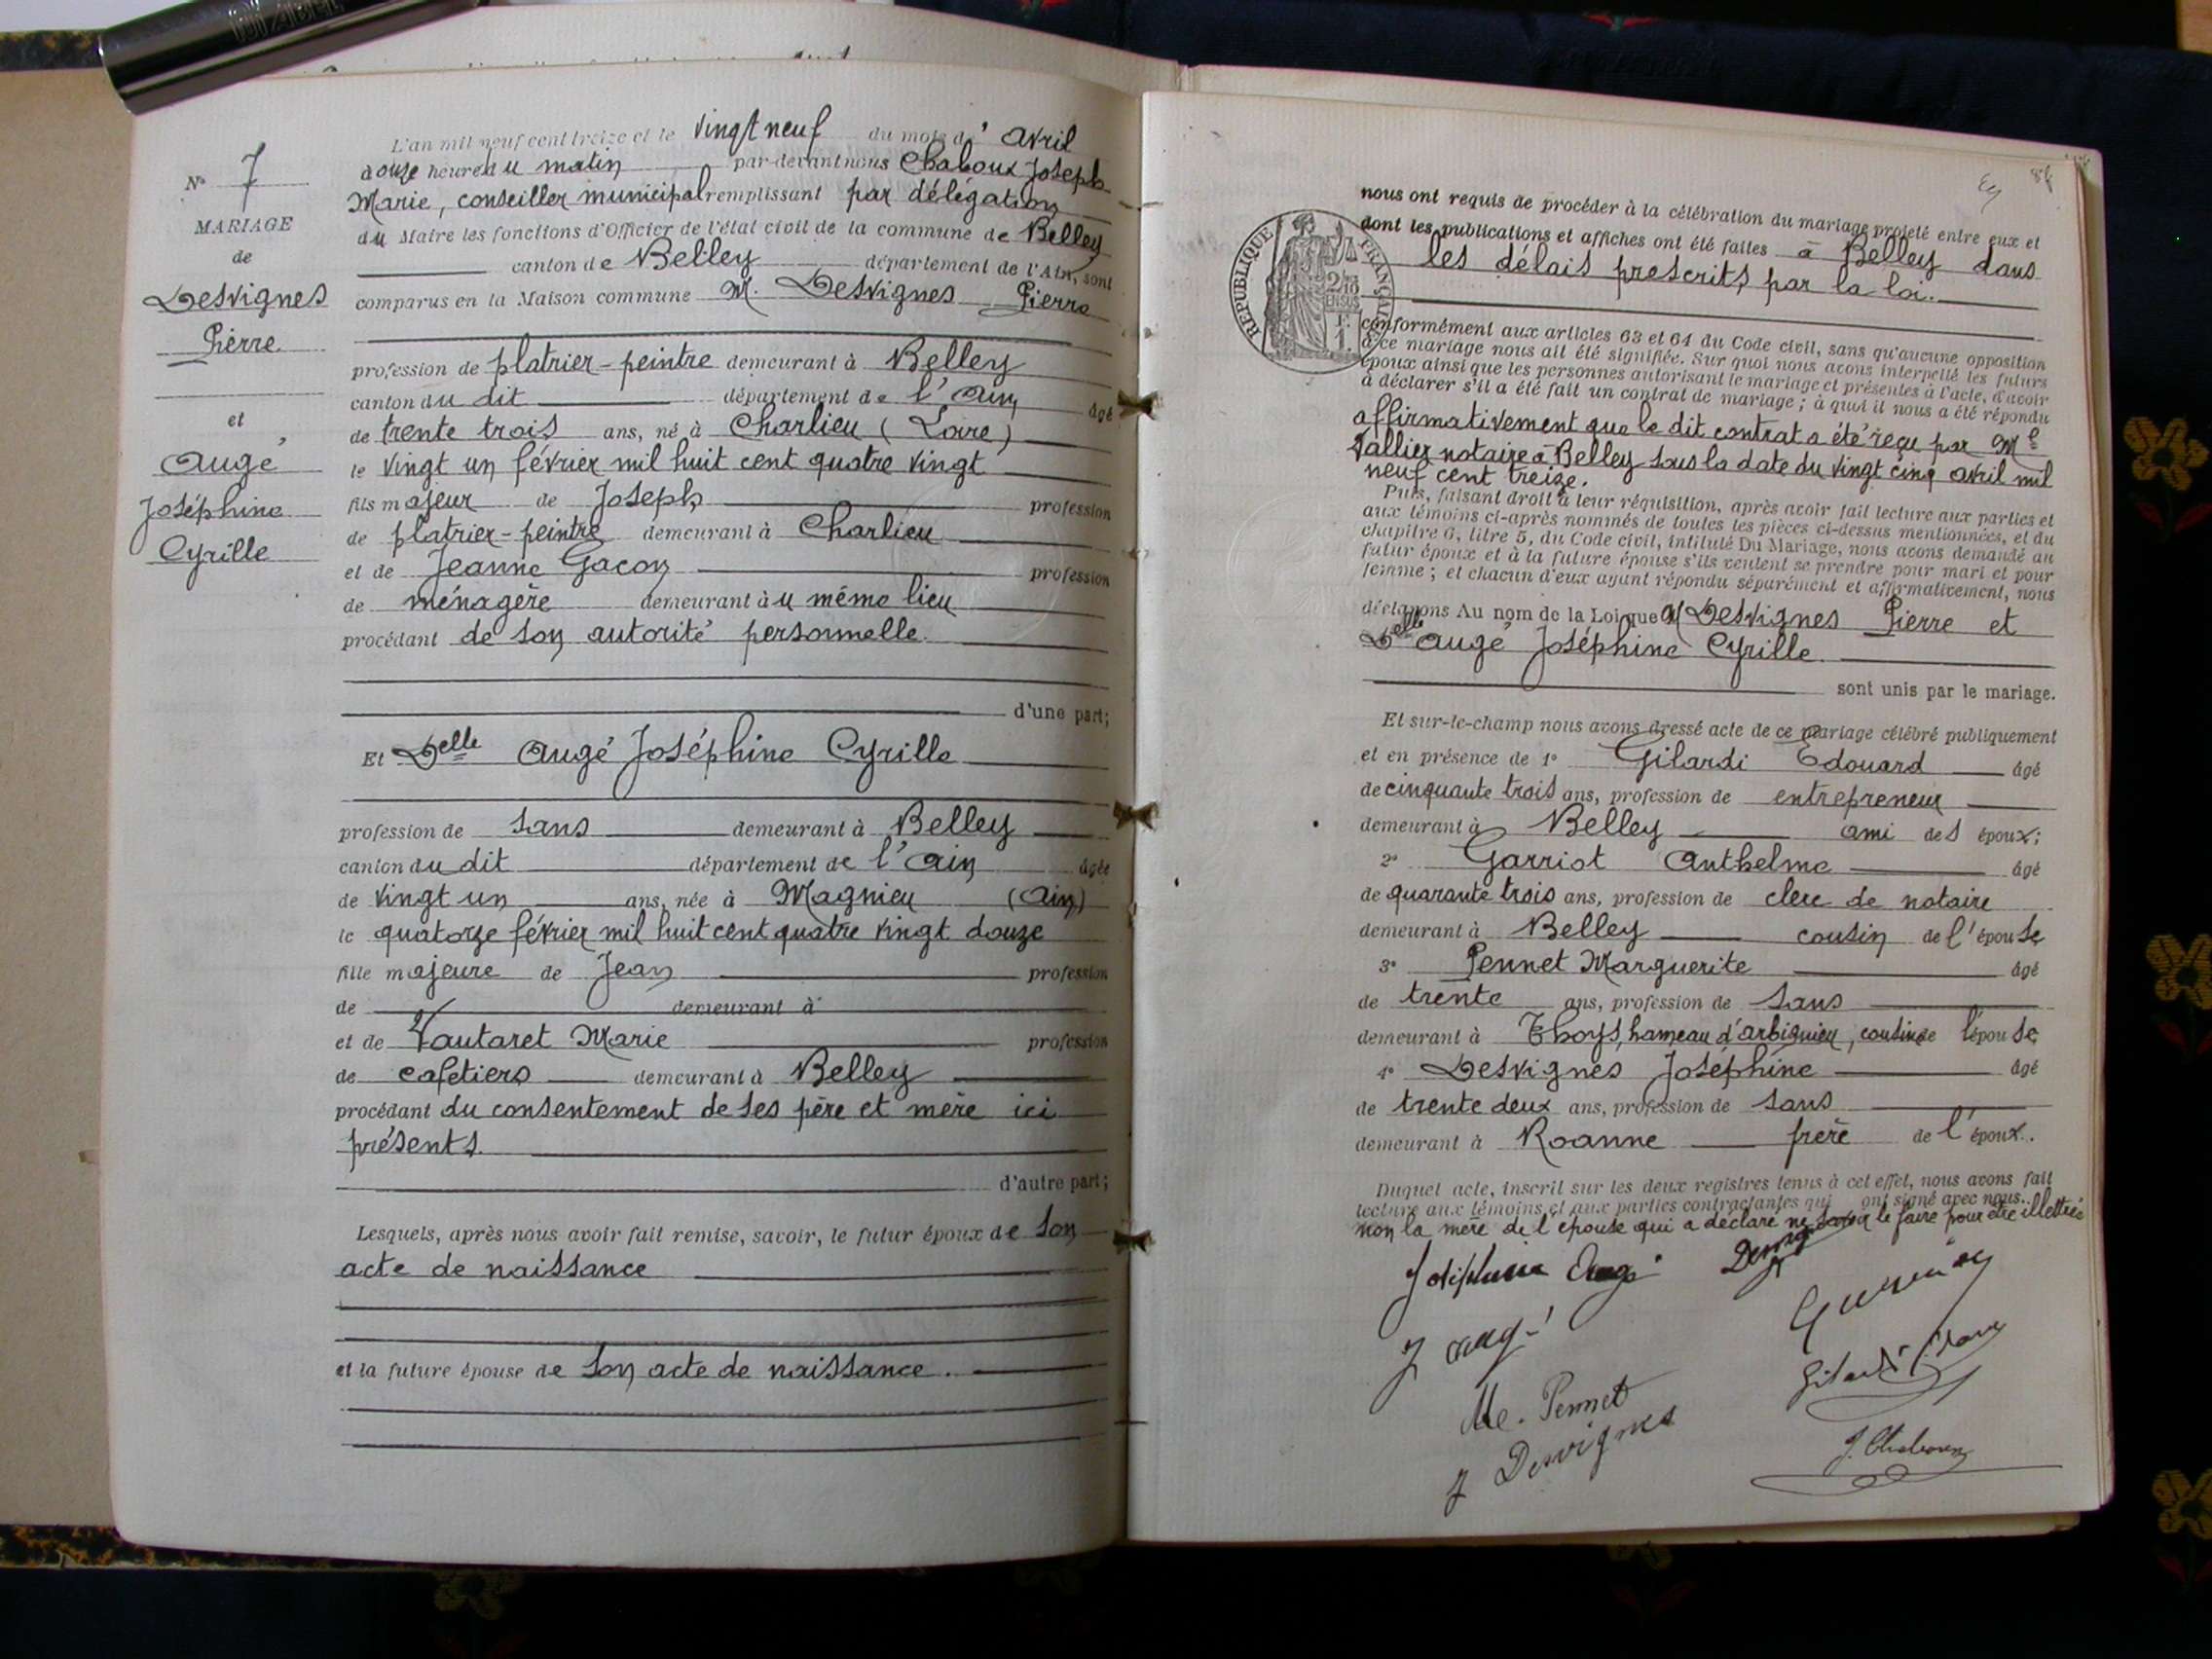 N° 7
MARIAGE
de
Desvignes
Pierre
et
Augé
Joséphine
Cyrille
L'an mil neuf cent treize et le vingt neuf du mois d'avril
à onze heure du matin par-devant nous Chaboux Joseph
Marie, conseiller municipal remplissant par délégation
du Maire les fonctions d'Officier de l'état civil de la commune de Belley
canton de Belley département de l'Ain, sont
comparus en la Maison commune M. Desvignes Pierre
profession de platrier-peintre demeurant à Belley
canton du dit département de l'Ain âgé
de trente trois ans, né à Charlieu (Loire)
le vingt un février mil huit cent quatre vingt
fils majeur de Joseph profession
de platrier-peintre demeurant à Charlieu
et de Jeanne Gacon profession
de ménagère demeurant au même lieu
procédant de son autorité personnelle.
d'une part;
Et Delle Augé Joséphine Cyrille
profession de sans demeurant à Belley
canton du dit département de l'Ain âgée
de vingt un ans, née à Magnieu (Ain)
le quatorze février mil huit cent quatre vingt douze
fille majeure de Jean profession
de demeurant à
et de Vautaret Marie profession
de cafetiers demeurant à Belley
procédant du consentement de ses père et mère ici
présents.
d'autre part;
Lesquels, après nous avoir fait remise, savoir, le futur époux de son
acte de naissance
et la future épouse de son acte de naissance.
nous ont requis de procéder à la célébration du mariage projeté entre eux et
dont les publications et affiches ont été faites à Belley dans
les délais prescrits par la loi.
REPUBLIQUE FRANÇAISE
conformément aux articles 63 et 64 du Code civil, sans qu'aucune opposition
à ce mariage nous ait été signifiée. Sur quoi nous avons interpellé les futurs
époux ainsi que les personnes autorisant le mariage et présentes à l'acte, d'avoir
à déclarer s'il a été fait un contrat de mariage; à quoi il nous a été répondu
affirmativement que le dit contrat a été reçu par Me
Vallier notaire à Belley sous la date du vingt cinq avril mil
neuf cent treize.
Puis, faisant droit à leur réquisition, après avoir fait lecture aux parties et
aux témoins ci-après nommés de toutes les pièces ci-dessus mentionnées, et du
chapitre 6, titre 5, du Code civil, intitulé Du Mariage, nous avons demandé au
futur époux et à la future épouse s'ils veulent se prendre pour mari et pour
femme; et chacun d'eux ayant répondu séparément et affirmativement, nous
déclarons Au nom de la Loi que M Desvignes Pierre et
Delle Augé Joséphine Cyrille.
sont unis par le mariage.
Et sur-le-champ nous avons dressé acte de ce mariage célébré publiquement
et en présence de 1° Gilardi Edouard âgé
de cinquante trois ans, profession de entrepreneur
demeurant à Belley ami des époux;
2° Garriot Anthelme âgé
de quarante trois ans, profession de clerc de notaire
demeurant à Belley cousin de l'épouse
3° Pennet Marguerite âgé
de trente ans, profession de sans
demeurant à Thoys, hameau d'Arbignieu, cousine de l'épouse
4° Desvignes Joséphine âgé
de trente deux ans, profession de sans
demeurant à Roanne frère de l'époux.
Duquel acte, inscrit sur les deux registres tenus à cet effet, nous avons fait
lecture aux témoins et aux parties contractantes qui ont signé avec nous..
non la mère de l'épouse qui a déclaré ne savoir le faire pour être illettrée
Joséphine Augé Desvignes
J Augé
Me. Pennet
J Desvignes
J. Chaboux